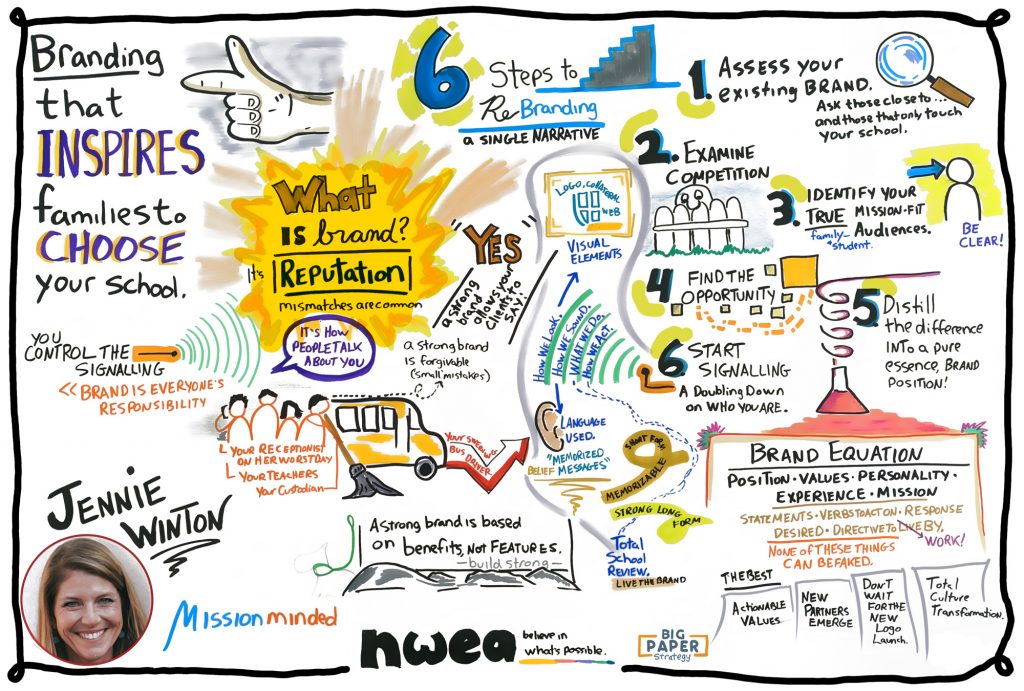 Branding
that
INSPIRES
families to
CHOOSE
your school.
What
IS brand?
It's REPUTATION
mismatches are common
IT'S HOW
PEOPLE TALK
ABOUT YOU
YOU
CONTROL THE
SIGNALLING
<< BRAND IS EVERYONE'S
RESPONSIBILITY
"YES"
a strong
brand
allows your
clients to
SAY!
a strong brand
is forgivable
(small mistakes)
YOUR RECEPTIONIST
ON HER WORST DAY
YOUR TEACHERS
Your Custodian
YOUR SWEARING
BUS DRIVER
JENNIE
WINTON
Mission minded
A strong brand is based
on benefits, NOT FEATURES.
- build strong -
6 Steps to
ReBranding
a SINGLE NARRATIVE
LOGO, COLLATERAL
WEB
VISUAL
ELEMENTS
How We Look.
How We Sound.
What We Do.
How We Act.
LANGUAGE
USED.
"MEMORIZED
MESSAGES"
BELIEF
SHORT FORM
MEMORIZABLE
STRONG LONG
FORM
Total
School
Review.
LIVE THE BRAND
1. ASSESS YOUR
existing BRAND.
Ask those close to...
and those that only touch
your school.
2. EXAMINE
COMPETITION
3. IDENTIFY YOUR
TRUE MISSION-FIT
Audiences.
family-
*student.
BE
CLEAR!
4 FIND THE
OPPORTUNITY
5. DISTILL
the difference
INTO a pure
essence, BRAND
POSITION!
6. START
SIGNALLING
A Doubling Down
on WHO YOU ARE.
BRAND EQUATION
POSITION • VALUES • PERSONALITY •
EXPERIENCE • MISSION
STATEMENTS • VERBS TO ACTION • RESPONSE
DESIRED • DIRECTIVE TO LIVE BY.
WORK!
NONE OF THESE THINGS
CAN BE FAKED.
THE BEST
ACTIONABLE
VALUES
NEW
PARTNERS
EMERGE
DON'T
WAIT
FOR THE
NEW
LOGO
Launch.
Total
Culture
Transformation.
nwea believe in
what's possible.
BIG
PAPER
strategy